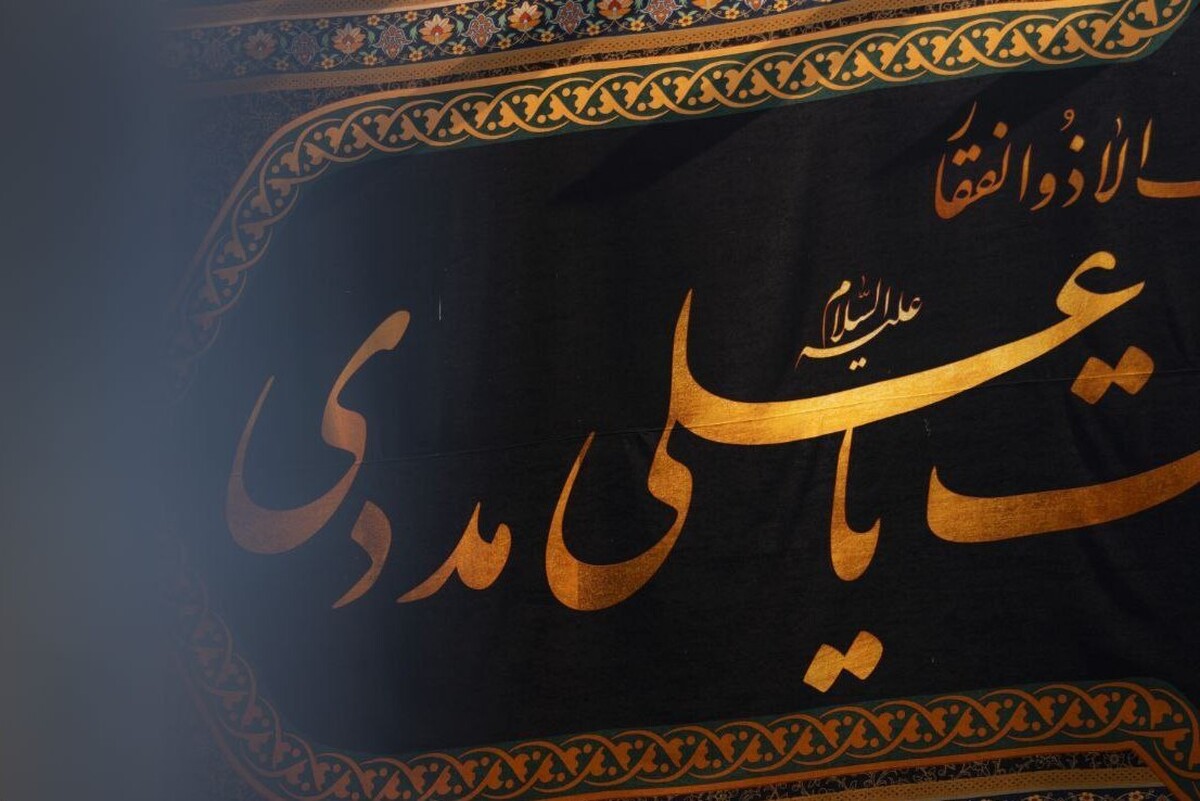 الا ذُوالفقار
یا علی علیه السّلام مددی